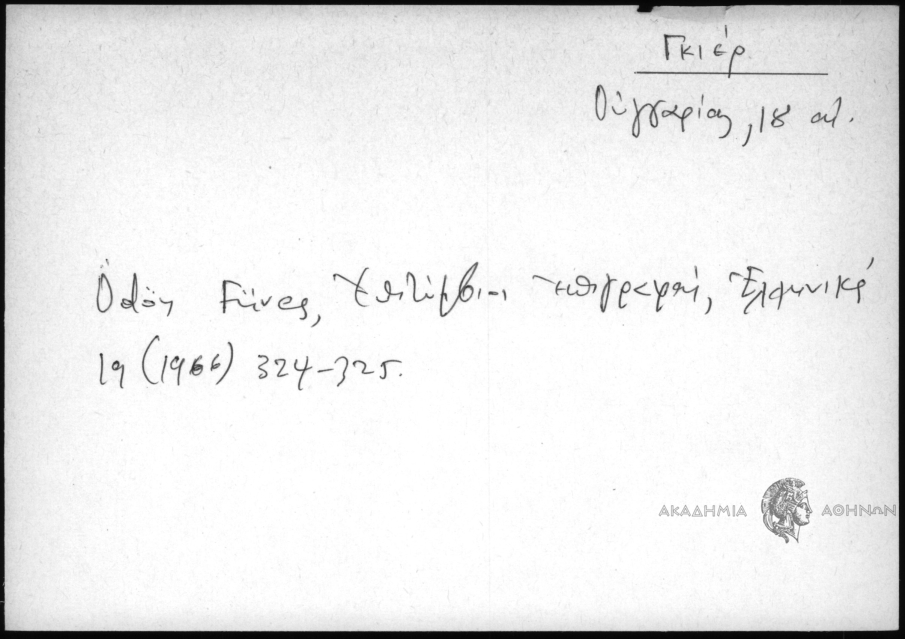 Γκιέρ
Οὑγγαρίας, 18 αἰ.
Ὀδὸν Füves, Ἐπιτύμβιοι ἐπιγραφαί, Ἑλληνικά
19 (1966) 324-325.
ΑΚΑΔΗΜΙΑ ΑΘΗΝΩΝ